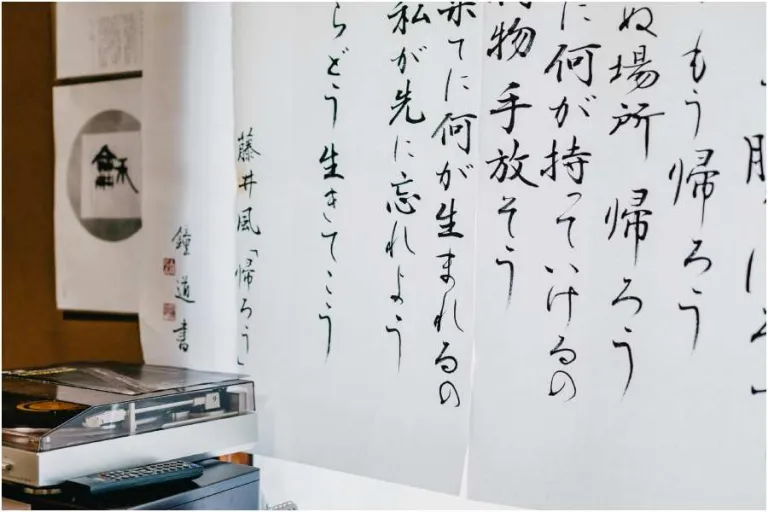 もう帰ろう
ぬ場所 帰ろう
に何が持っていけるの
物 手放そう
てに何が生まれるの
私が先に忘れよう
らどう生きてこう
藤井風「帰ろう」
鐘道書